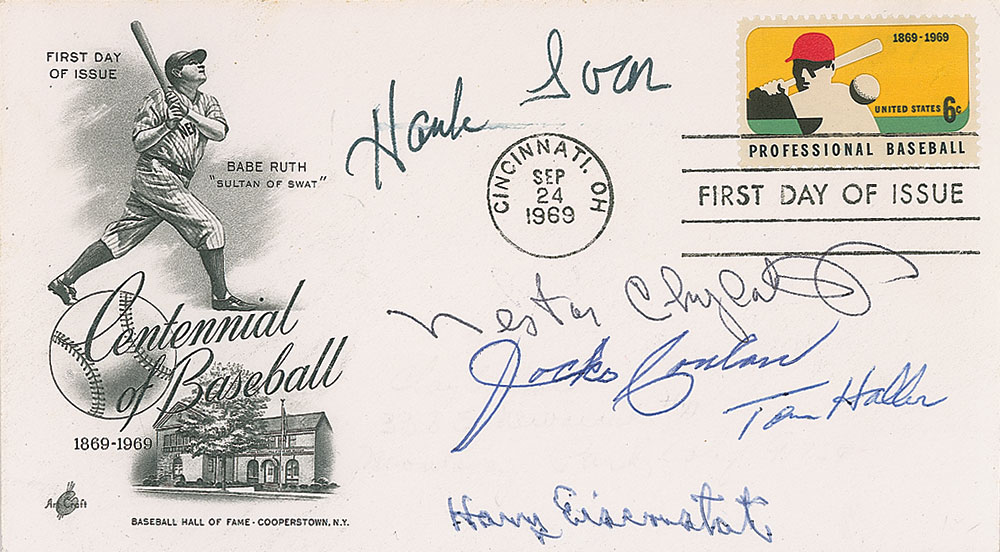 FIRST DAY
OF ISSUE
BABE RUTH
"SULTAN OF SWAT"
NE
Centennial
of Baseball
1869-1969
Art Craft
BASEBALL HALL OF FAME · COOPERSTOWN, N.Y.
Hank Soar
1869-1969
UNITED STATES 6c
PROFESSIONAL BASEBALL
CINCINNATI, OH
SEP
24
1969
FIRST DAY OF ISSUE
Nestor Chylak
Jocko Conlan
Tom Haller
Harry Eisenstat